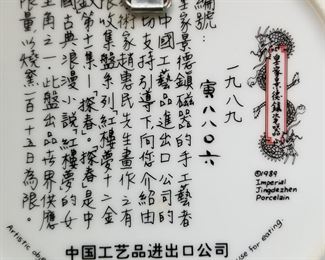 編號：
寅八八○六
一九八九
皇家景德鎮磁器的手工藝者
中國工藝品進出口公司的
切支持引導下向您介紹由
術家趙惠民先生畫作之有
限收集盤系列「紅樓夢十二金
釵」第十一集—「探春」。「探春」是中
國古典浪漫小說「紅樓夢」的女
主角之一。此盤出品世界供應
限量,以燒窯一百一十五日為限。
皇家景德鎮瓷器
©1989
Imperial
Jingdezhen
Porcelain
Artistic
use for eating.
中国工艺品进出口公司